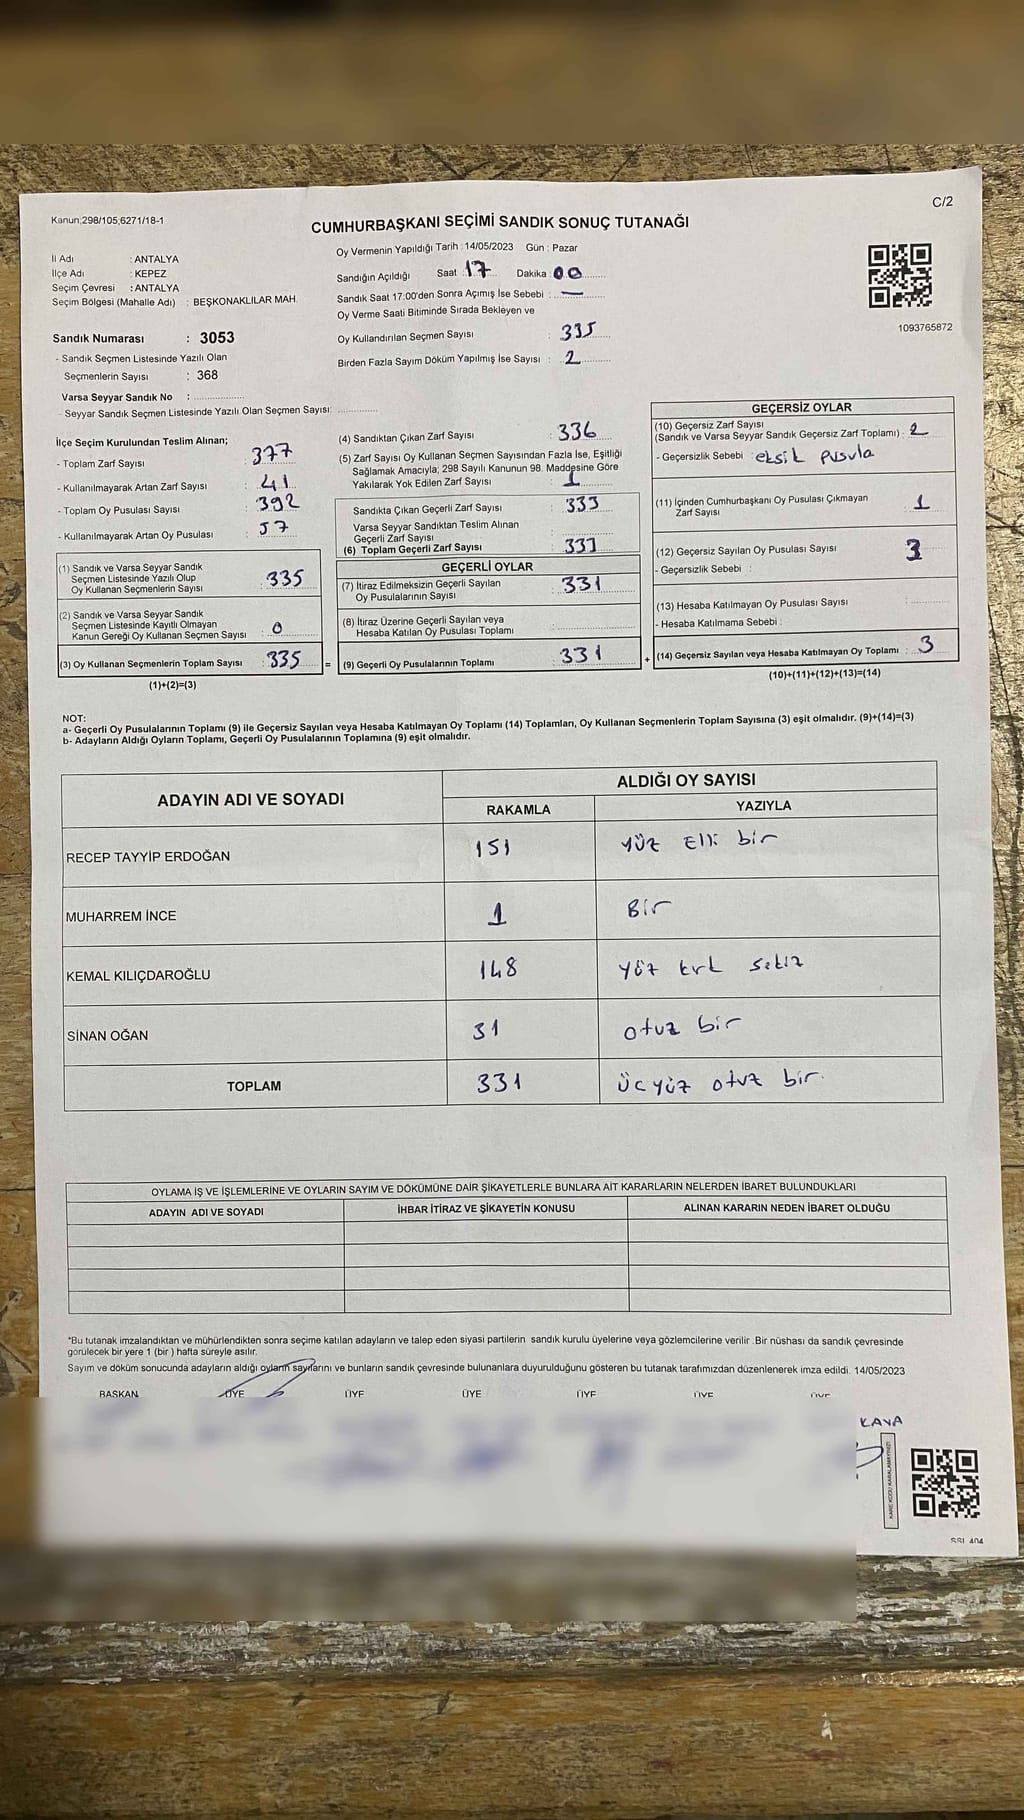 Kanun:298/105,6271/18-1
C/2
CUMHURBAŞKANI SEÇİMİ SANDIK SONUÇ TUTANAĞI
İl Adı : ANTALYA
İlçe Adı : KEPEZ
Seçim Çevresi : ANTALYA
Seçim Bölgesi (Mahalle Adı) : BEŞKONAKLILAR MAH.
Sandık Numarası : 3053
- Sandık Seçmen Listesinde Yazılı Olan
Seçmenlerin Sayısı : 368
Varsa Seyyar Sandık No :
- Seyyar Sandık Seçmen Listesinde Yazılı Olan Seçmen Sayısı:
Oy Vermenin Yapıldığı Tarih : 14/05/2023 Gün : Pazar
Sandığın Açıldığı Saat : 17 Dakika : 00
Sandık Saat 17:00'den Sonra Açımış İse Sebebi : —
Oy Verme Saati Bitiminde Sırada Bekleyen ve
Oy Kullandırılan Seçmen Sayısı : 335
Birden Fazla Sayım Döküm Yapılmış İse Sayısı : 2
1093765872
İlçe Seçim Kurulundan Teslim Alınan;
- Toplam Zarf Sayısı : 377
- Kullanılmayarak Artan Zarf Sayısı : 41
- Toplam Oy Pusulası Sayısı : 392
- Kullanılmayarak Artan Oy Pusulası : 57
(1) Sandık ve Varsa Seyyar Sandık
Seçmen Listesinde Yazılı Olup
Oy Kullanan Seçmenlerin Sayısı : 335
(2) Sandık ve Varsa Seyyar Sandık
Seçmen Listesinde Kayıtlı Olmayan
Kanun Gereği Oy Kullanan Seçmen Sayısı : 0
(3) Oy Kullanan Seçmenlerin Toplam Sayısı : 335 =
(1)+(2)=(3)
(4) Sandıktan Çıkan Zarf Sayısı : 336
(5) Zarf Sayısı Oy Kullanan Seçmen Sayısından Fazla İse, Eşitliği
Sağlamak Amacıyla; 298 Sayılı Kanunun 98. Maddesine Göre
Yakılarak Yok Edilen Zarf Sayısı : 1
Sandıkta Çıkan Geçerli Zarf Sayısı : 333
Varsa Seyyar Sandıktan Teslim Alınan
Geçerli Zarf Sayısı :
(6) Toplam Geçerli Zarf Sayısı : 333
GEÇERLİ OYLAR
(7) İtiraz Edilmeksizin Geçerli Sayılan
Oy Pusulalarının Sayısı : 331
(8) İtiraz Üzerine Geçerli Sayılan veya
Hesaba Katılan Oy Pusulası Toplamı :
(9) Geçerli Oy Pusulalarının Toplamı : 331 +
GEÇERSİZ OYLAR
(10) Geçersiz Zarf Sayısı
(Sandık ve Varsa Seyyar Sandık Geçersiz Zarf Toplamı) : 2
- Geçersizlik Sebebi : eksik pusula
(11) İçinden Cumhurbaşkanı Oy Pusulası Çıkmayan
Zarf Sayısı : 1
(12) Geçersiz Sayılan Oy Pusulası Sayısı : 3
- Geçersizlik Sebebi :
(13) Hesaba Katılmayan Oy Pusulası Sayısı :
- Hesaba Katılmama Sebebi :
(14) Geçersiz Sayılan veya Hesaba Katılmayan Oy Toplamı : 3
(10)+(11)+(12)+(13)=(14)
NOT:
a- Geçerli Oy Pusulalarının Toplamı (9) ile Geçersiz Sayılan veya Hesaba Katılmayan Oy Toplamı (14) Toplamları, Oy Kullanan Seçmenlerin Toplam Sayısına (3) eşit olmalıdır. (9)+(14)=(3)
b- Adayların Aldığı Oyların Toplamı, Geçerli Oy Pusulalarının Toplamına (9) eşit olmalıdır.
ADAYIN ADI VE SOYADI ALDIĞI OY SAYISI
RAKAMLA YAZIYLA
RECEP TAYYİP ERDOĞAN 151 yüz Elli bir
MUHARREM İNCE 1 Bir
KEMAL KILIÇDAROĞLU 148 yüz kırk sekiz
SİNAN OĞAN 31 otuz bir
TOPLAM 331 üçyüz otuz bir.
OYLAMA İŞ VE İŞLEMLERİNE VE OYLARIN SAYIM VE DÖKÜMÜNE DAİR ŞİKAYETLERLE BUNLARA AİT KARARLARIN NELERDEN İBARET BULUNDUKLARI
ADAYIN ADI VE SOYADI İHBAR İTİRAZ VE ŞİKAYETİN KONUSU ALINAN KARARIN NEDEN İBARET OLDUĞU
*Bu tutanak imzalandıktan ve mühürlendikten sonra seçime katılan adayların ve talep eden siyasi partilerin sandık kurulu üyelerine veya gözlemcilerine verilir. Bir nüshası da sandık çevresinde
görülecek bir yere 1 (bir) hafta süreyle asılır.
Sayım ve döküm sonucunda adayların aldığı oyların sayılarını ve bunların sandık çevresinde bulunanlara duyurulduğunu gösteren bu tutanak tarafımızdan düzenlenerek imza edildi. 14/05/2023
BAŞKAN ÜYE ÜYE ÜYE ÜYE ÜYE ÜYE
KAYA
KARE KODU KARALAMAYINIZ!